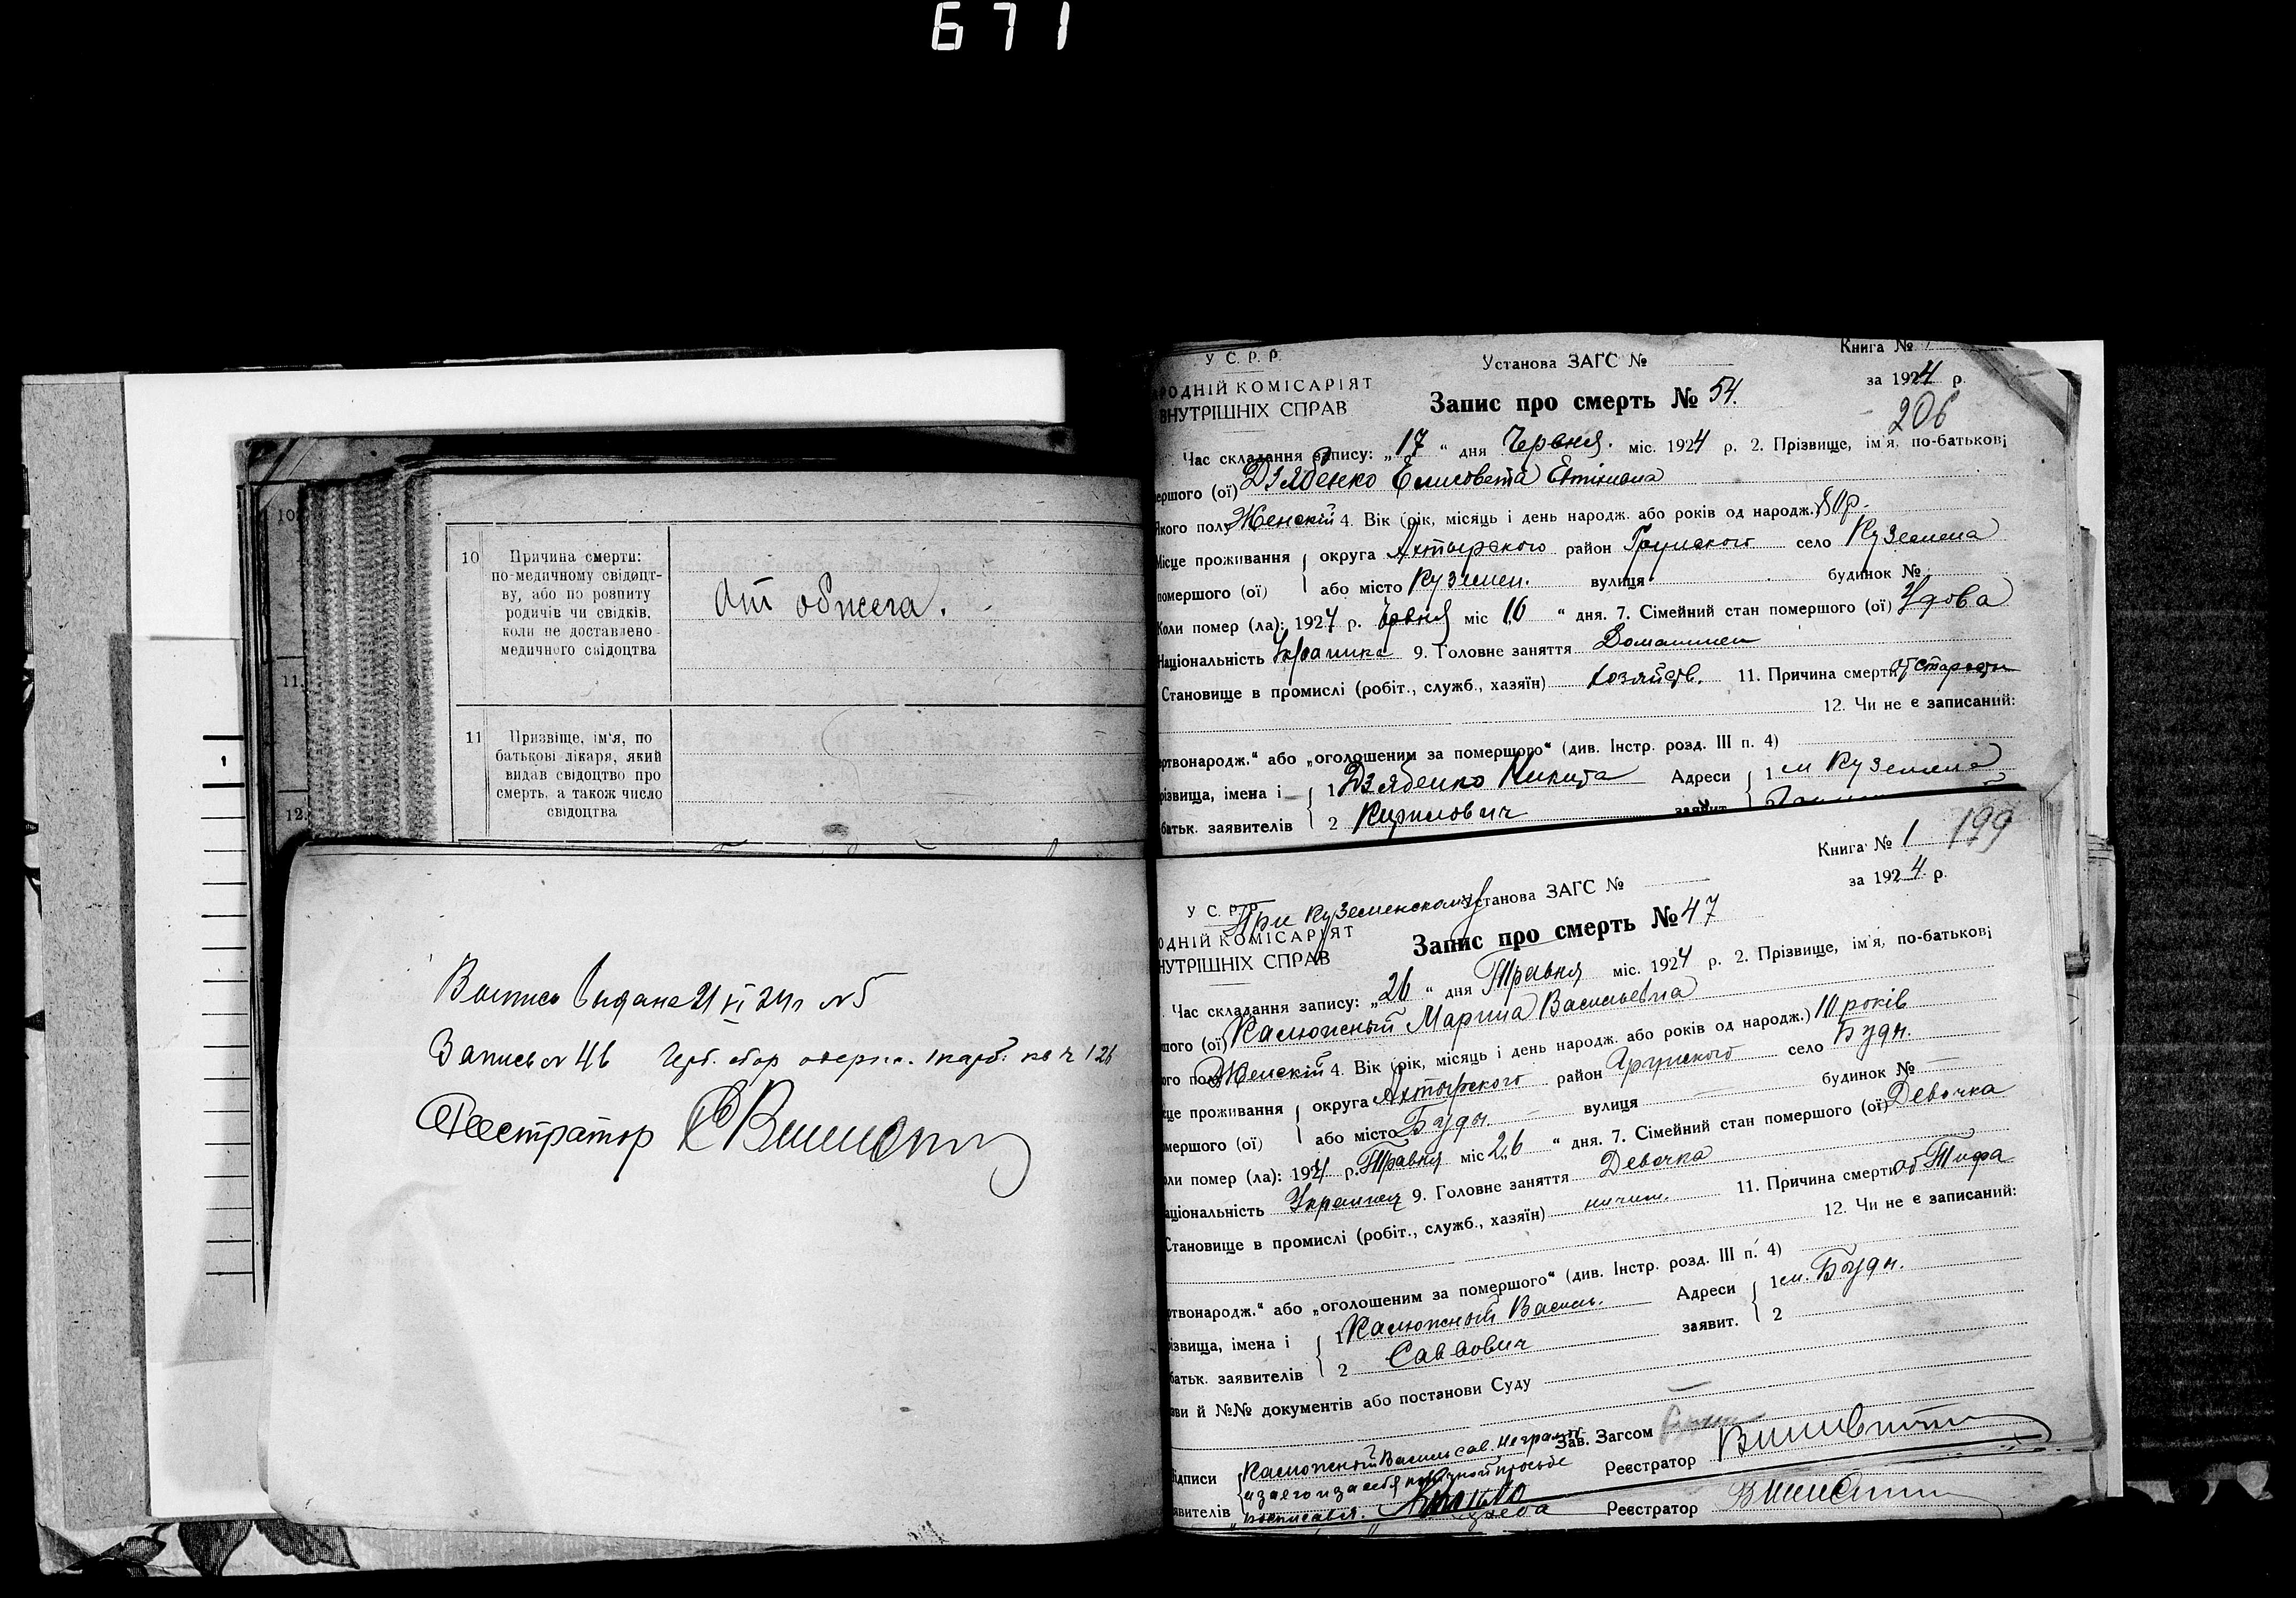 671
10
11.
12.
10
Причина смерти:
по-медичному свідоцт-
ву, або по розпиту
родичів чи свідків,
коли не доставлено
медичного свідоцтва
От обжега.
11
Призвіще, ім'я, по
батькові лікаря, який
видав свідоцтво про
смерть, а також число
свідоцтва
Выпись выдана 21 VI 24 г № 5
Запись № 46
Реєстратор
У С. Р. Р.
РОДНІЙ КОМІСАРІЯТ
ВНУТРІШНІХ СПРАВ
Установа ЗАГС №
Запис про смерть № 54.
Книга №
за 1924 р.
206
Час складання запису: „17 “ дня Червня. міс. 1924 р. 2. Прізвище, ім'я, по-батькові
ершого (ої) Дзябенко Елисовета
Якого полу Женскій 4. Вік (рік, місяць і день народж. або років од народж.) 80 р.
Місце проживання округа Ахтырского район Грунского село Куземена
помершого (ої) або місто Куземен. вулиця будинок №
Коли помер (ла): 1924 р. Червня міс 16 “ дня. 7. Сімейний стан помершого (ої) Удова
Національність 9. Головне заняття Домашнем
Становище в промислі (робіт., служб., хазяїн) хозяйств. 11. Причина смерти от старости
12. Чи не є записаний:
ртвонародж.“ або „оголошеним за померщого“ (див. Інстр. розд. III п. 4)
різвища, імена і 1 Дзябенко Никита Адреси 1 м Куземена
батьк. заявителів 2 Кирилович заявит.
Книга № 1 199
за 1924 р.
При Куземенском
У С. Р. Р.
ОДНІЙ КОМІСАРІЯТ
НУТРІШНІХ СПРАВ
Установа ЗАГС №
Запис про смерть № 47
Час складання запису: „26 “ дня Травня міс. 1924 р. 2. Прізвище, ім'я, по-батькові
шого (ої) Калюжный Марина Васильевна
ого полу Женскій 4. Вік (рік, місяць і день народж. або років од народж.) 10 років
це проживання округа Ахтырского район Грунского село Буди.
мершого (ої) або місто Буди. вулиця будинок №
ли помер (ла): 1924 р. Травня міс 26 “ дня. 7. Сімейний стан помершого (ої) Девочка
аціональність Украинец 9. Головне заняття Девочка
Становище в промислі (робіт., служб., хазяїн) 11. Причина смерти от Тифа
12. Чи не є записаний:
ртвонародж.“ або „оголошеним за померщого“ (див. Інстр. розд. III п. 4)
ізвища, імена і 1 Калюжный Василь. Адреси 1 м. Буди.
батьк. заявителів 2 Саввович заявит. 2
ви й №№ документів або постанови Суду
Зав. Загсом
ідписи Калюжный Василь Сав. неграмот.
и за его и за себя по личной просьбе
явителів росписался.
Реєстратор
Реєстратор